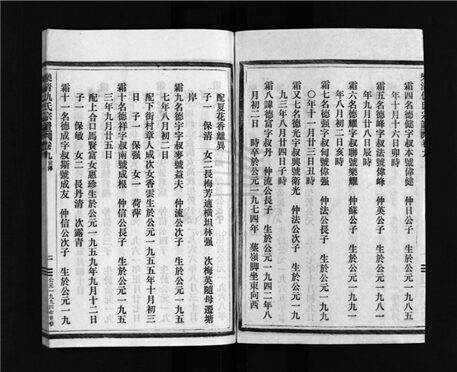 霜四名德全字叔木號偉健　仲日公子　生於公元一九八五
年十月十六日卯時
霜五名德峰字叔法號偉峰　仲英公子　生於公元一九八
年九月廿八日辰時
霜六名德耀字叔聯號榮耀　仲蘇公子　生於公元一九八
年八月初二日亥時
霜七名德强字叔句號偉强　仲法公長子　生於公元一九八
〇年十一月廿三日丑時
又霜七名德光字叔興號衛光　仲法公次子　生於公元一九
九三年八月廿四日子時
霜八諱德富字叔丹　仲流公長子　生於公元一九四二年八
月初二日　卒於公元一九七四年　墓嶺脚坐東向西
配夏花香離異
子一　保清　女二　長梅芳適橫垣林强　次梅英隨母遷塘
岸
霜九名德宇字叔麥號蓋夫　仲流公次子　生於公元一九五
七年八月初二日
配下街村章人成次女香雲生於公元一九五五年十月初三
日　子一　保强　女一　荷萍
霜十名德祥字叔南號成根　仲信公長子　生於公元一九五
三年九月廿五日
配上合口馬賢富女惠珍生於公元一九五九年九月十二日
子一　保敏　女二　長丹清　次露青
霜十一名德成字叔斯號成友　仲信公次子　生於公元一九
樂清仇氏宗譜
卷九
二
公元一九九四年重修